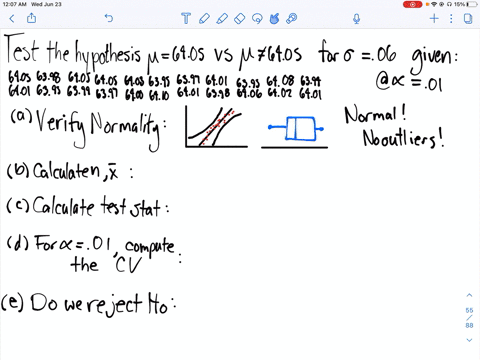 12:07 AM Wed Jun 23
15%
Test the hypothesis μ=64.05 vs μ≠64.05 for σ=.06 given:
@α=.01
64.05 63.98 64.03 64.05
63.97 64.01 63.93 64.08 63.99
64.01 63.95
63.97 64.00 64.10 64.01 63.98 64.06 64.02 64.01
(a) Verify Normality:
Normal!
No outliers!
(b) Calculate n, x̄ :
(c) Calculate test stat :
(d) For α=.01, compute
the CV :
(e) Do we reject Ho:
55
/
88